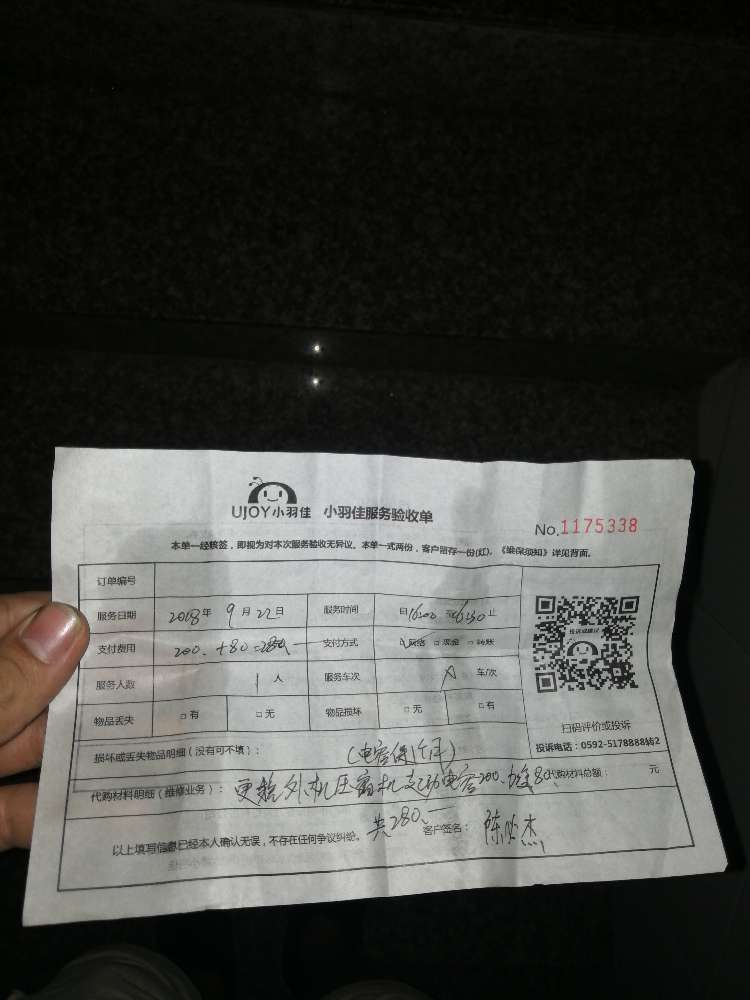 UJOY小羽佳 小羽佳服务验收单
No.1175338
本单一经核签，即视为对本次服务验收无异议。本单一式两份，客户留存一份(红)。《维保须知》详见背面。
订单编号
服务日期 2018年 9月22日 服务时间 自16:00至16:30止
支付费用 200.+80=280 支付方式 网络 □ 现金 □ 转账
服务人数 1人 服务车次 车/次
物品丢失 □有 □无 物品损坏 □无 □有
投诉或建议
扫码评价或投诉
投诉电话：0592-5178888转2
损坏或丢失物品明细（没有可不填）： (电容保1年)
代购材料明细（维修业务）： 更换外机压缩机启动电容200. 80. 代购材料总额： 元
共280. 客户签名：
以上填写信息已经本人确认无误，不存在任何争议纠纷。